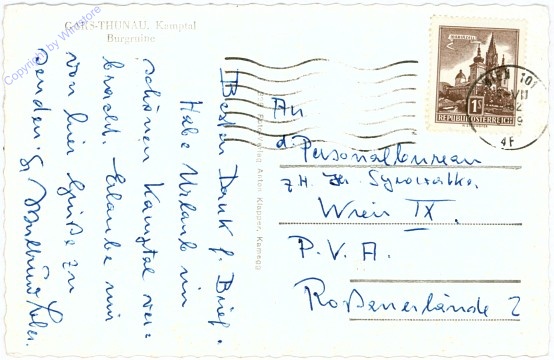 GARS-THUNAU, Kamptal
Burgruine
Besten Dank f. Brief.
Habe Urlaub im
schönen Kamptal ver=
bracht. Erlaube mir
von hier Grüße zu
senden.
An
d. Personalbureau
z.H. Hr.
Wien IX.
P.V.A.
Roßauerlände 2
Anton Klapper, Kamegg
MARIAZELL
1S
REPUBLIK ÖSTERREICH
WIEN 101
4F
Copyright by Wildstore